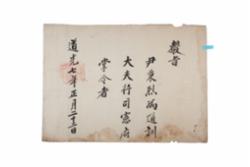 敎旨
尹秉烈爲通訓
大夫行司憲府
掌令者
道光七年正月二十二日